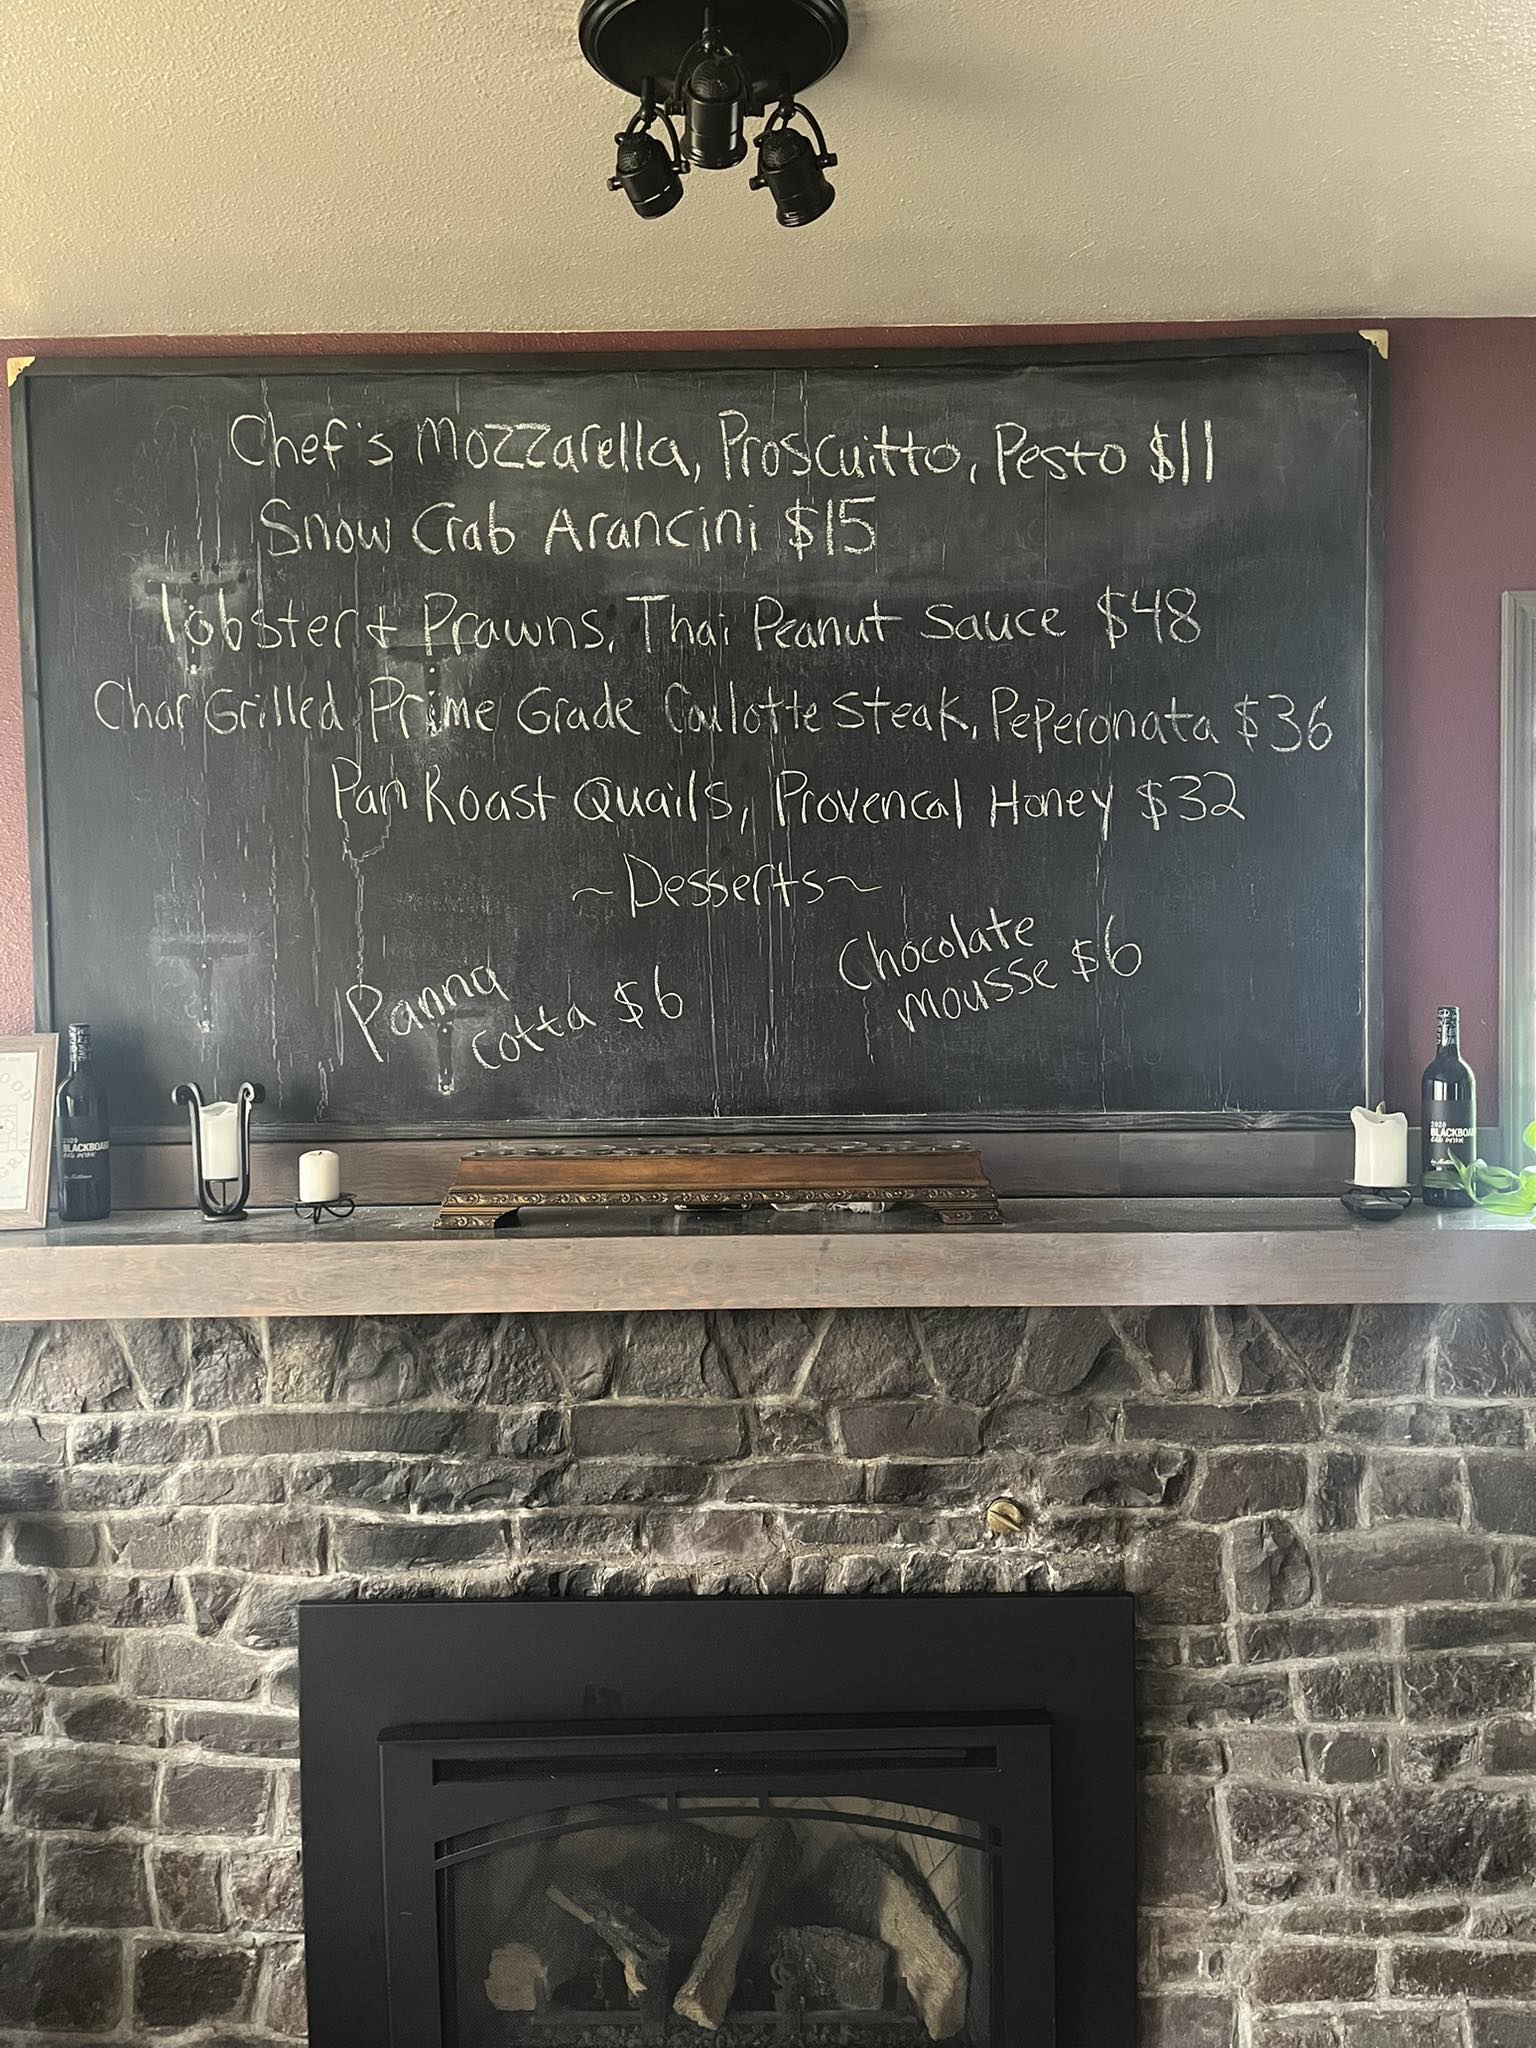 Chef's Mozzarella, Proscuitto, Pesto $11
Snow Crab Arancini $15
lobster + Prawns, Thai Peanut Sauce $48
Char Grilled Prime Grade Coulotte Steak, Peperonata $36
Pan Roast Quails, Provencal Honey $32
~Desserts~
Panna
cotta $6
Chocolate
mousse $6
2020
BLACKBOA
RED WINE
2020
BLACKBOA
RED WINE